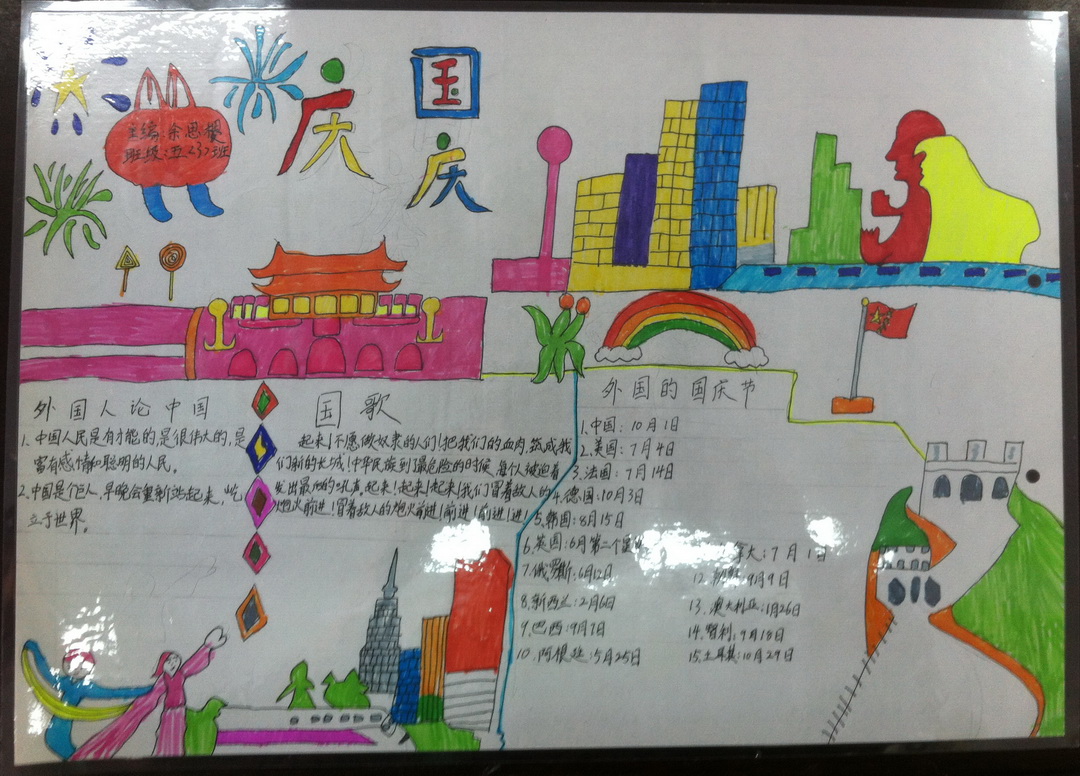 国庆
庆
主编:余思
班级:五〈3〉班
外国人论中国
1.中国人民是有才能的,是很伟大的,是
富有感情和聪明的人民。
2.中国是个巨人,早晚会重新站起来,屹
立于世界。
国歌
起来!不愿做奴隶的人们!把我们的血肉,筑成我
们新的长城!中华民族到了最危险的时候,每个人被迫着
发出最后的吼声。起来!起来!起来!我们冒着敌人的
炮火前进!冒着敌人的炮火前进!前进!前进!进!
外国的国庆节
1.中国:10月1日
2.美国:7月4日
3.法国:7月14日
4.德国:10月3日
5.韩国:8月15日
6.英国:6月第二个星
7.俄罗斯:6月12日
8.新西兰:2月6日
9.巴西:9月7日
10.阿根廷:5月25日
大:7月1日
12.朝鲜:9月9日
13.澳大利亚:1月26日
14.智利:9月18日
15.土耳其:10月29日